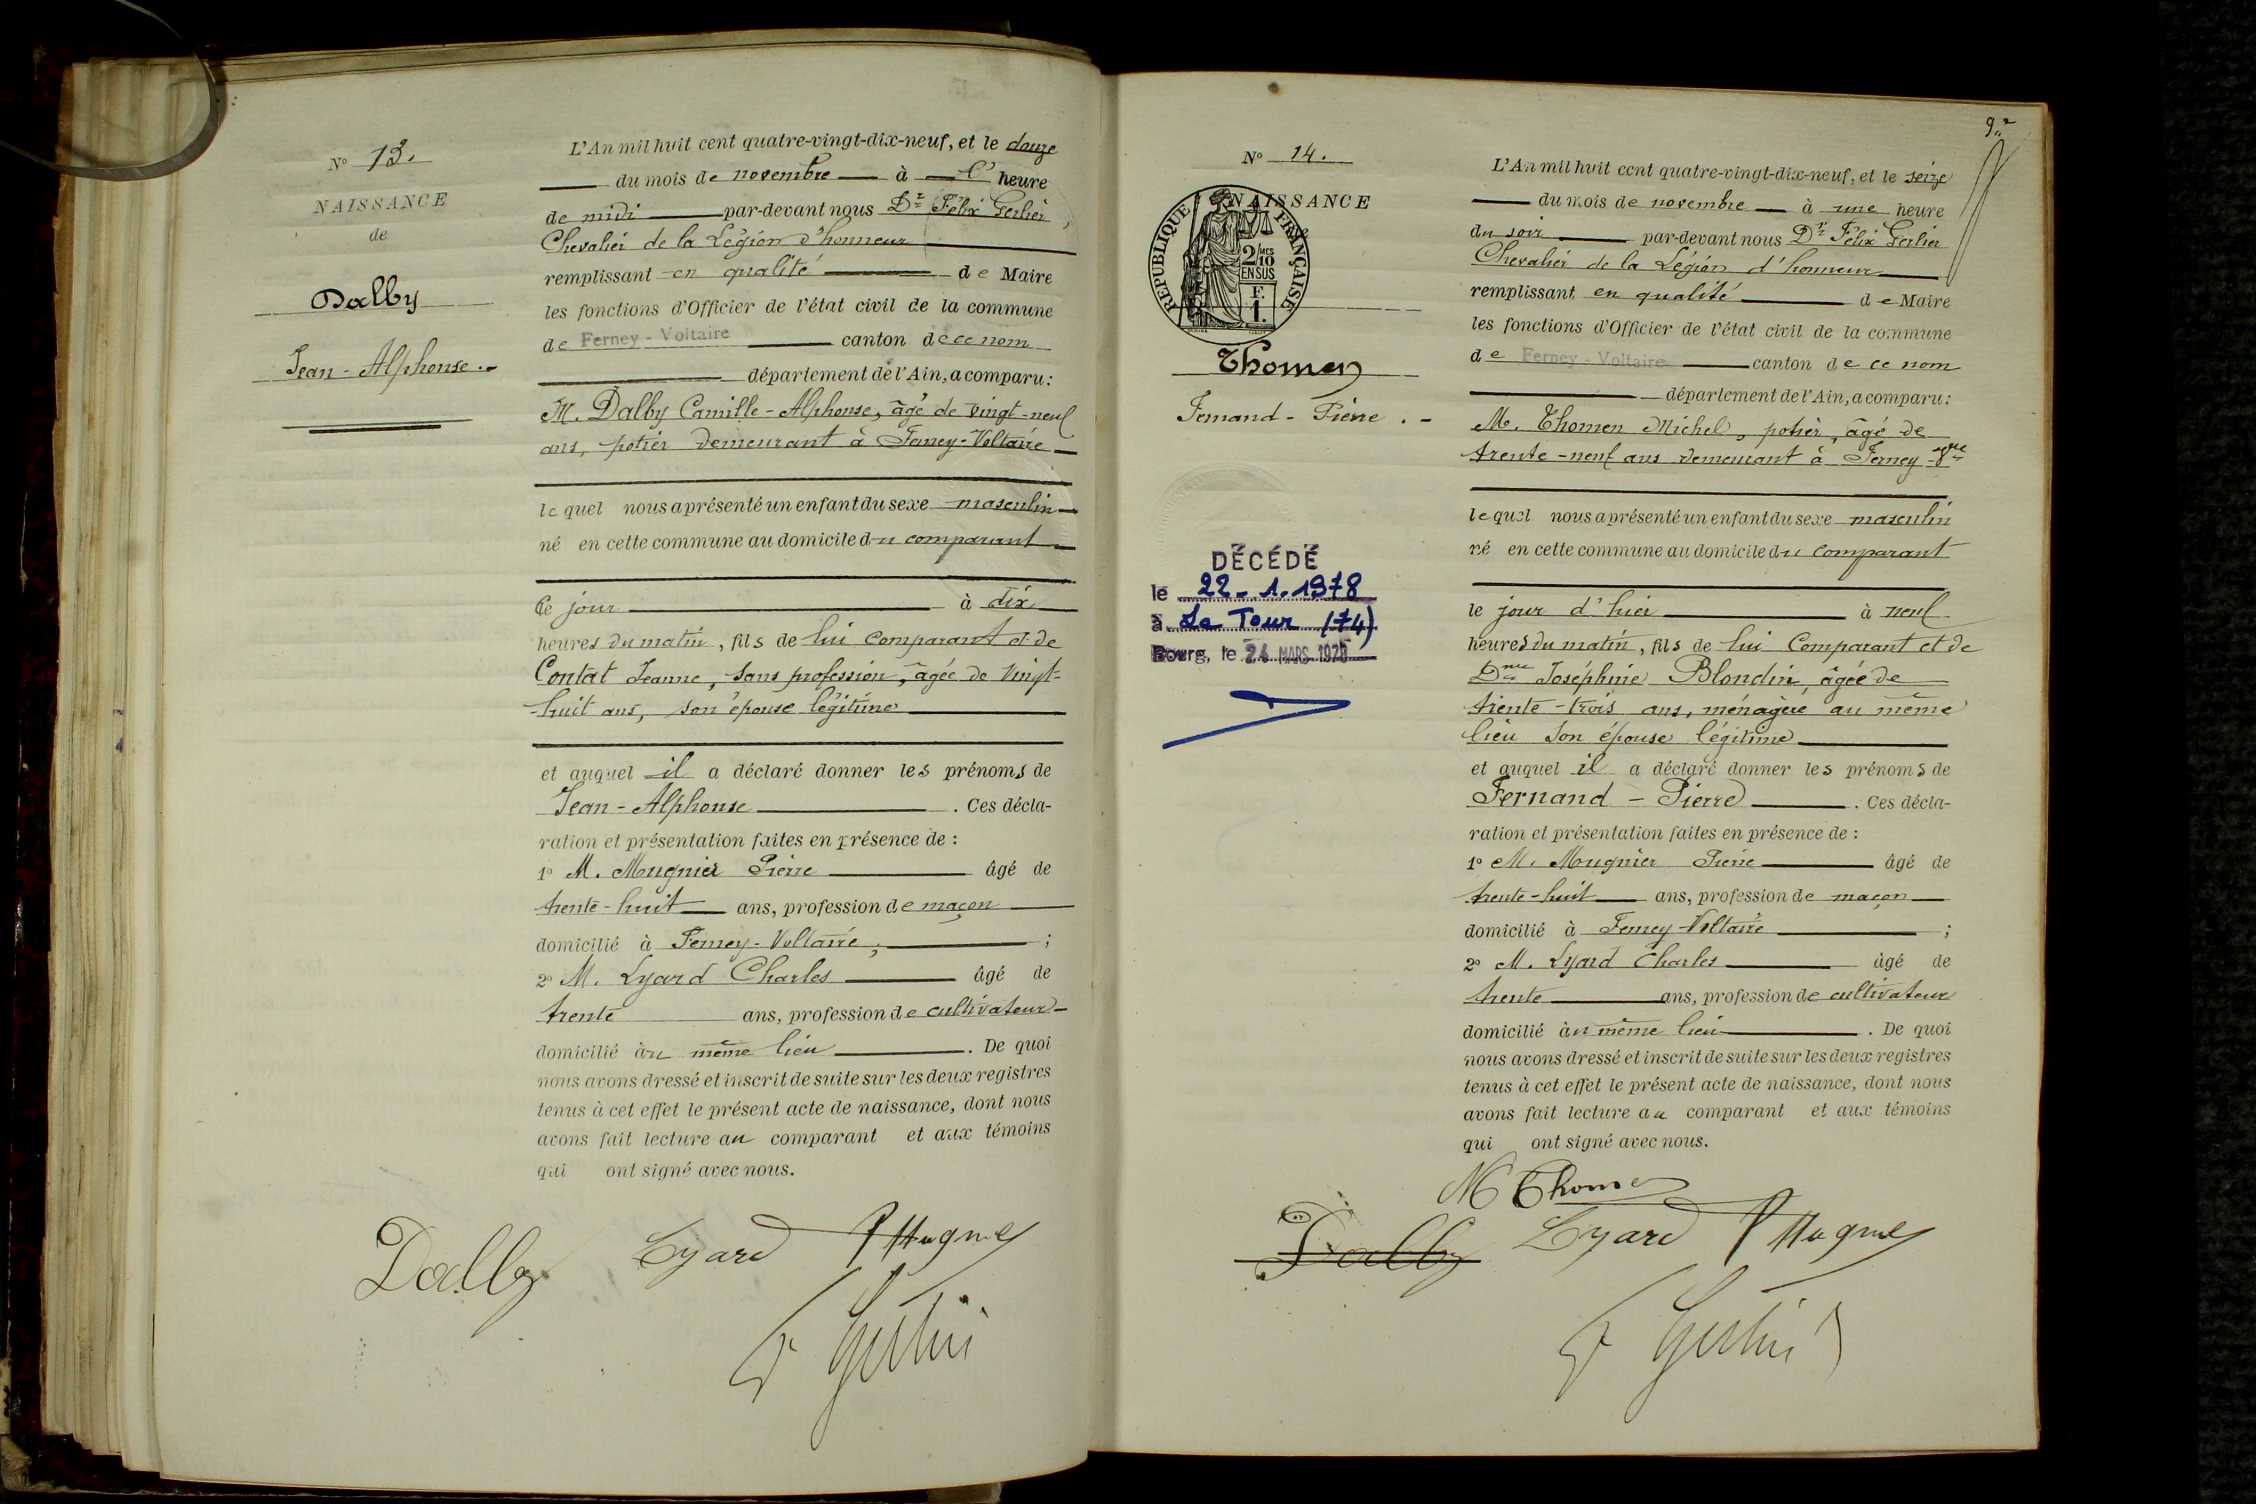 N° 13.
NAISSANCE
de
Dalby
Jean-Alphonse.
L'An mil huit cent quatre-vingt-dix-neuf, et le douze
du mois de novembre à l' heure
de midi par-devant nous Dr Félix Gerlier
Chevalier de la Légion d'honneur
remplissant en qualité de Maire
les fonctions d'Officier de l'état civil de la commune
de Ferney-Voltaire canton de ce nom
département de l'Ain, a comparu:
M. Dalby Camille-Alphonse, âgé de vingt-neuf
ans, potier demeurant à Ferney-Voltaire
lequel nous a présenté un enfant du sexe masculin
né en cette commune au domicile du comparant
Ce jour à dix
heures du matin, fils de lui comparant et de
Contat Jeanne, sans profession, âgée de vingt-
-huit ans, son épouse légitime
et auquel il a déclaré donner les prénoms de
Jean-Alphonse. Ces décla-
ration et présentation faites en présence de :
1° M. Mougnier Pierre âgé de
trente-huit ans, profession de maçon
domicilié à Ferney-Voltaire, ;
2° M. Lyard Charles âgé de
trente ans, profession de cultivateur
domicilié au même lieu. De quoi
nous avons dressé et inscrit de suite sur les deux registres
tenus à cet effet le présent acte de naissance, dont nous
avons fait lecture au comparant et aux témoins
qui ont signé avec nous.
Dalby Lyard
F Gerlier
N° 14.
NAISSANCE
RÉPUBLIQUE FRANÇAISE
2/10
EN SUS
F.
1.
Thomen
Fernand-Pierre.
DÉCÉDÉ
le 22-1.1978
à La Tour (74)
Bourg, le 24 MARS 1978
L'An mil huit cent quatre-vingt-dix-neuf, et le seize
du mois de novembre à une heure
du soir par-devant nous Dr Félix Gerlier
Chevalier de la Légion d'honneur
remplissant en qualité de Maire
les fonctions d'Officier de l'état civil de la commune
de Ferney-Voltaire canton de ce nom
département de l'Ain, a comparu:
M. Thomen Michel, potier, âgé de
trente-neuf ans demeurant à Ferney-Vre
lequel nous a présenté un enfant du sexe masculin
né en cette commune au domicile du comparant
le jour d'hier à neuf
heures du matin, fils de lui Comparant et de
Dme Joséphine Blondin, âgée de
trente-trois ans, ménagère au même
lieu son épouse légitime
et auquel il a déclaré donner les prénoms de
Fernand-Pierre. Ces décla-
ration et présentation faites en présence de :
1° M. Mougnier Pierre âgé de
trente-huit ans, profession de maçon
domicilié à Ferney-Voltaire ;
2° M. Lyard Charles âgé de
trente ans, profession de cultivateur
domicilié au même lieu. De quoi
nous avons dressé et inscrit de suite sur les deux registres
tenus à cet effet le présent acte de naissance, dont nous
avons fait lecture au comparant et aux témoins
qui ont signé avec nous.
M Thomen
Dalby Lyard
F Gerlier